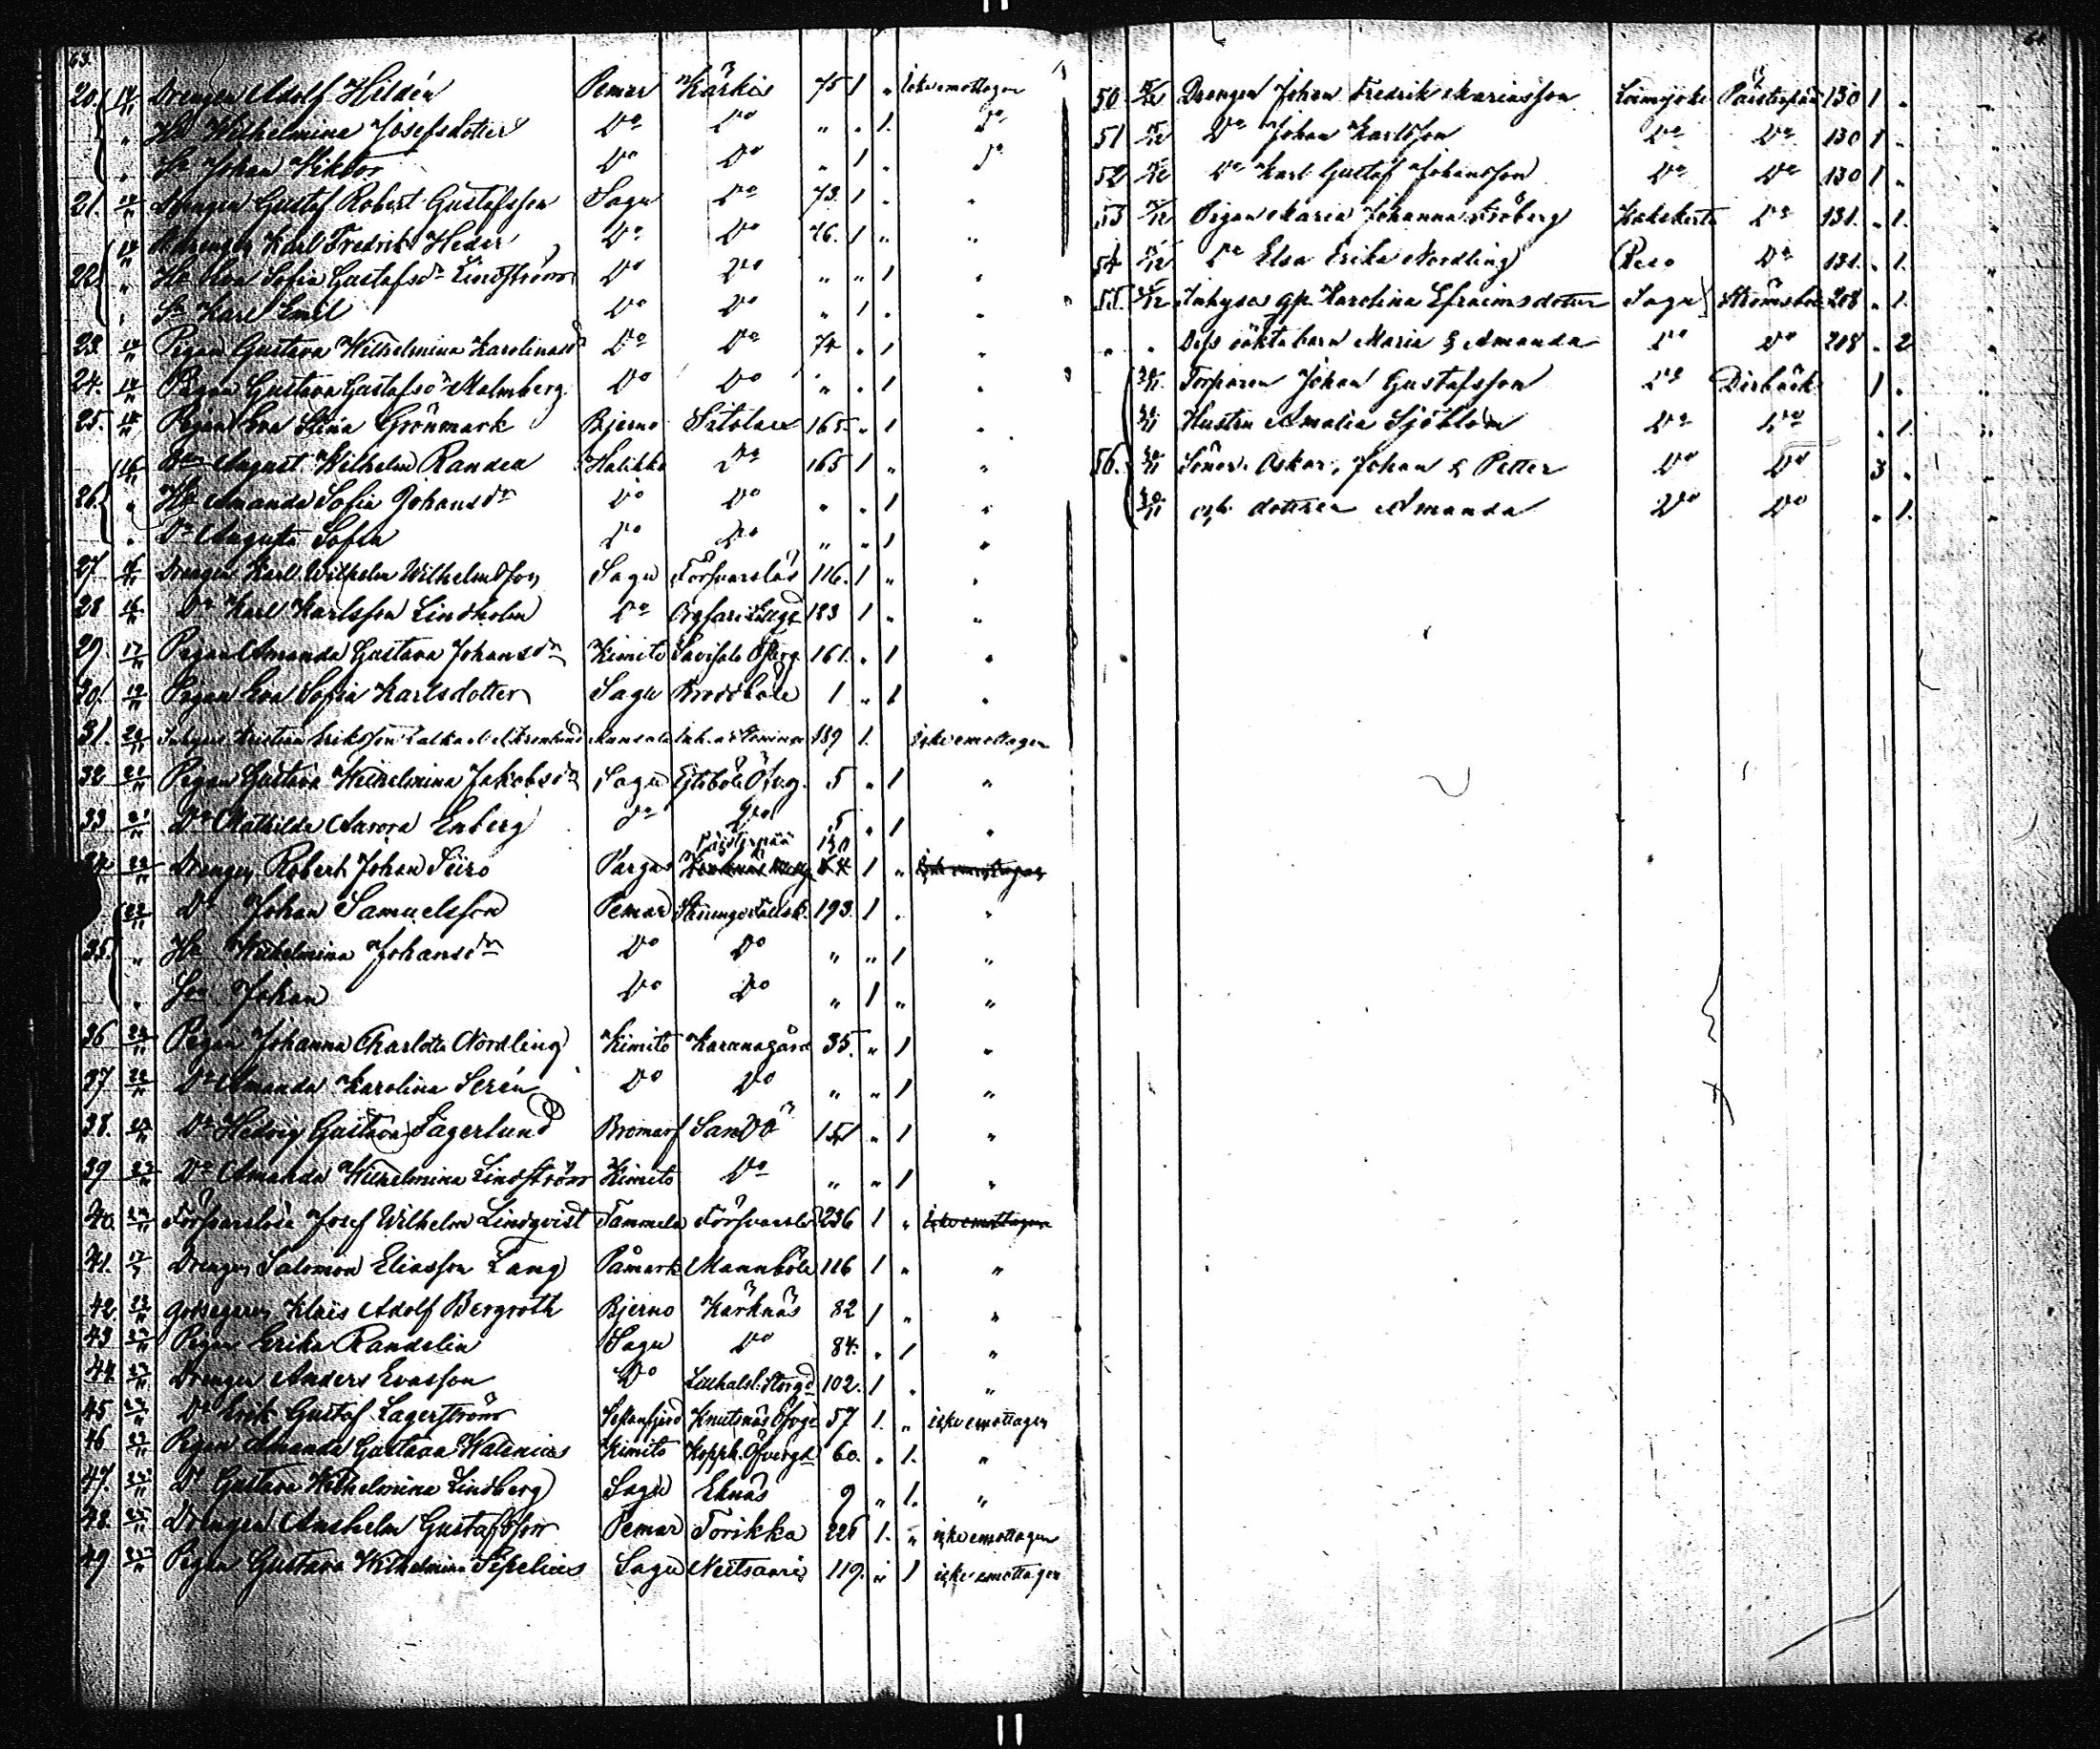 63.
20. 14/11 Drengen Adolf Hildén Pemar Kärkis 75 1 " Icke emottagen
" Hu Wilhelmina Josefsdotter Do Do " " 1. Do
" Sn Johan Viktor Do Do " 1 " Do
21. 14/11 Drengen Gustaf Robert Gustafsson Sagu Do 73. 1 " "
14/11 Karl Fredrik Heder Do Do 76. 1 " "
22. " Hu Eva Sofia Gustafsdr Lindström Do Do " " 1 "
" Sn Karl Emil Do Do " 1 " "
23. 14/11 Pigan Gustava Wilhelmina Karolinasdr Do Do 74 " 1 "
24. 14/11 Pigan Gustava Gustafsdr Malmberg Do Do " " 1 "
25. 15/11 Pigan Eva Stina Grönmark Bjerno 165 " 1 "
16/11 August Wilhelm Randea Halikko Do 165 1 " "
26. " Hu Amanda Sofia Johansdr Do Do " " 1 "
" Dr Augusta Sofia Do Do " " 1 "
27 16/11 Drengen Karl Wilhelm Wilhelmsson Sagu Försvarslös 116. 1 " "
28 16/11 Do Karl Karlsson Lindholm Do 183 1 " "
29. 17/11 Pigan Amanda Gustava Johansdr Kimito 161. " 1 "
30. 19/11 Pigan Eva Sofia Karlsdotter Sagu Broddböle 1 " 1 "
31. 20/11 Kristian Eriksson 189 1. Icke emottagen
32 20/11 Pigan Gustava Wilhelmina Jakobsdr Sagu 5 " 1 "
33 21/11 Do Mathilda Aurora Enberg Do Do 5 " 1 "
Päisterpää 130
34. 22/11 Drengen Robert Johan Seiro Pargas 1 " Icke emottagen
22/11 Do Johan Samuelsson Pemar 193. 1 " "
35. " Hu Wilhelmina Johansdr Do Do " " 1 "
" Son Johan Do Do " 1 " "
36 22/11 Pigan Johanna Charlotta Nordling Kimito Karunagård 35. " 1 "
37 22/11 Do Amanda Karolina Serén Do Do " " 1 "
38. 23/11 Do Hedvig Gustava Fagerlund Bromarf Sandö 151 " 1 "
39 23/11 Do Amanda Wilhelmina Lindström Kimito Do " " 1 "
40. 24/11 Försvarslöse Josef Wilhelm Lindqvist Tammela Försvarslös 236 1 " Icke emottagen
41. Drengen Salomon Eliasson Lang Påmark Mannböle 116 1 " "
42. 23/11 Godsegaren Klaes Adolf Bergroth Bjerno Kärknäs 82 1 " "
43 Pigan Erika Randelin Sagu Do 84. " 1 "
44. Drengen Anders Evasson Do 102. 1 " "
45 Do Erik Gustaf Lagerström Knutsnäs 57 1. " icke emottagen
46 Pigan Amanda Gustava Walenius Kimito 60. " 1. "
47. Do Gustava Wilhelmina Lindberg Sagu Eknäs 9 " 1. "
48. Drengen Anshelm Gustafsson Pemar Torikka 226 1. " icke emottagen
49 Pigan Gustava Wilhelmina Sipelius Sagu Neitsaari 119. " 1 icke emottagen
50 Drengen Johan Fredrik Mariasson Loimijoki Päisterpää 130 1 " "
51 Do Johan Karlsson Do Do 130 1 " "
52 Do Karl Gustaf Johansson Do Do 130 1 " "
53 Pigan Maria Johanna Sjöberg Kakskerta Do 131. " 1. "
54 Do Elsa Erika Nordling Reso Do 131. " 1. "
55. Inhyses gfr Karolina Efraimsdotter Sagu Strömsbol 208 " 1. "
" " Dess oäkta barn Maria & Amanda Do Do 208 " 2 "
30/11 Torparen Johan Gustafsson Do Dirback 1 " "
30/11 Hustru Amalia Sjöblom Do Do " 1. "
56. 30/11 Söner Oskar, Johan & Petter Do Do 3 " "
30/11 och dotteren Amanda Do Do " 1. "